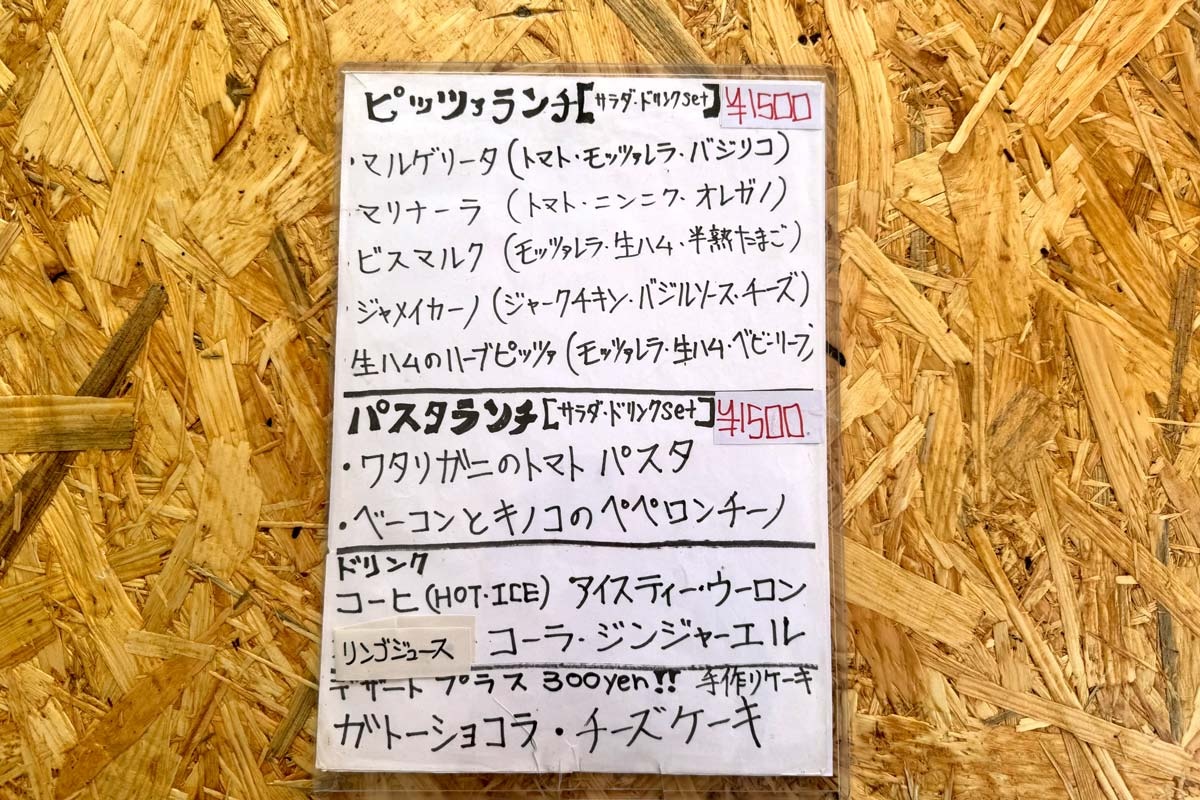 ピッツァランチ[サラダ・ドリンクset] ¥1500
・マルゲリータ(トマト・モッツァレラ・バジリコ)
マリナーラ (トマト・ニンニク・オレガノ)
・ビスマルク (モッツァレラ・生ハム・半熟たまご)
・ジャメイカーノ (ジャークチキン・バジルソース・チーズ)
生ハムのハーブピッツァ (モッツァレラ・生ハム・ベビーリーフ)
パスタランチ[サラダ・ドリンクset] ¥1500
・ワタリガニのトマト パスタ
・ベーコンとキノコのペペロンチーノ
ドリンク
コーヒ(HOT・ICE) アイスティー・ウーロン
リンゴジュース コーラ・ジンジャーエル
デザート プラス 300yen!! 手作りケーキ
ガトーショコラ・チーズケーキ